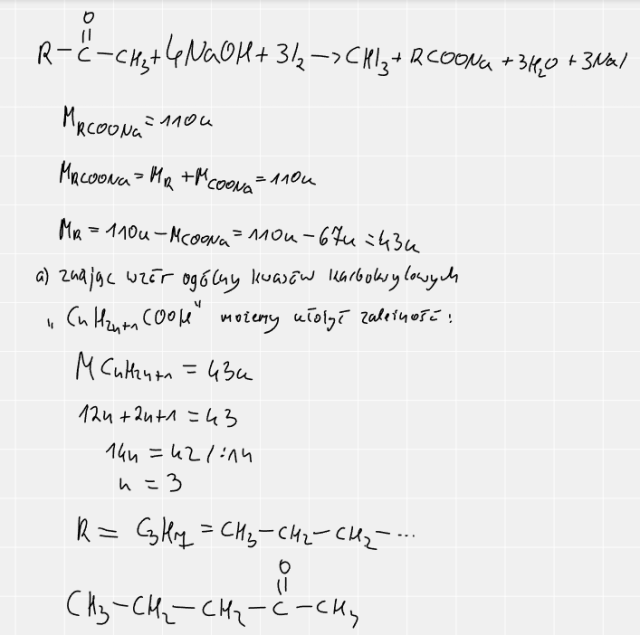 O
||
R–C–CH₃+4NaOH+3I₂–>CHI₃+RCOONa+3H₂O+3NaI
M_RCOONa=110u
M_RCOONa=M_R+M_COONa=110u
M_R=110u–M_COONa=110u–67u=43u
a) znając wzór ogólny kwasów karboksylowych
"CnH2n+1COOH" możemy ułożyć zależność:
M CnH2n+1 = 43u
12n+2n+1=43
14n=42/:14
n=3
R= C₃H₇=CH₃–CH₂–CH₂–...
O
||
CH₃–CH₂–CH₂–C–CH₃